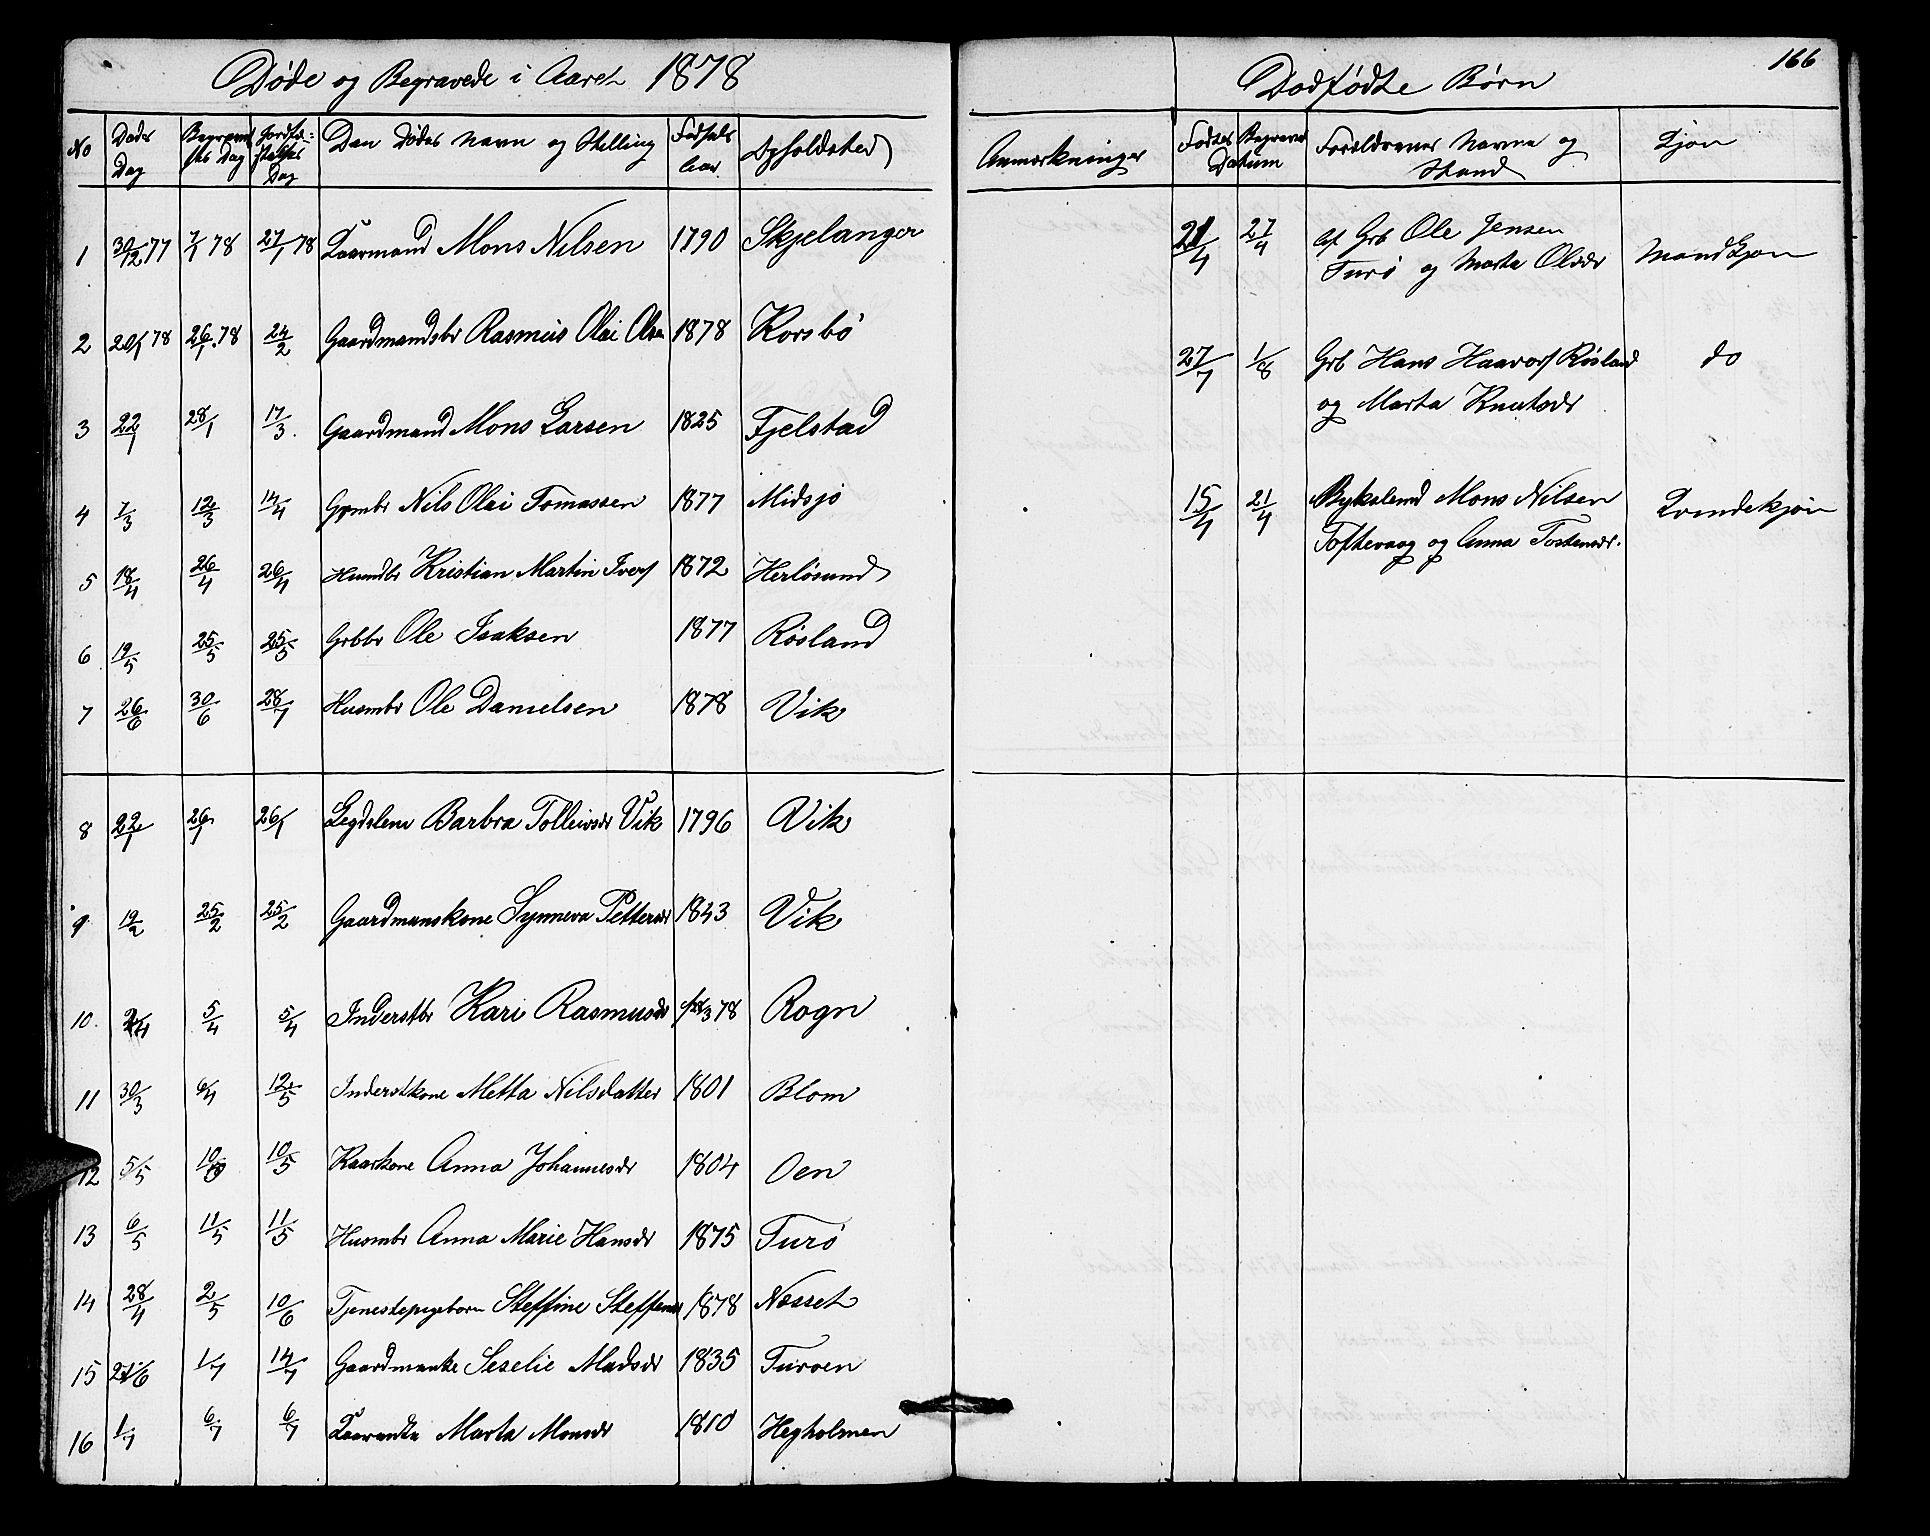 Døde og Begravede i Aaret 1878
No Døds Dag Begravelses Dag Jordfæstelses Dag Den Dødes Navn og Stilling Fødsels Aar Opholdsted
1 30/12 77 7/1 78 27/1 78 Kaarmand Mons Nilsen 1790 Skjelanger
2 20/1 78 26/1 78 24/2 Gaardmandsbr Rasmus Olai Olsen 1878 Korsbø
3 22/1 28/1 17/3 Gaardmand Mons Larsen 1825 Fjelstad
4 7/3 12/3 14/4 Grmbr Nils Olai Tomassen 1877 Midsjø
5 18/4 26/4 26/4 Husmdbr Kristian Martin Ivers 1872 Herløsund
6 19/5 25/5 25/5 Grbbr Ole Isaksen 1877 Røsland
7 26/6 30/6 28/7 Husmbr Ole Danielsen 1878 Vik
8 22/1 26/1 26/1 Legdslem Barbra Tolleivsdr Vik 1796 Vik
9 19/2 25/2 25/2 Gaardmanskone Synneva Pettersdr 1843 Vik
10. 2/4 5/4 5/4 Inderstbr Kari Rasmusdr 3 78 Rogn
11 30/3 6/4 12/5 Inderstkone Metta Nilsdatter 1801 Blom
12 5/5 10/5 10/5 Kaarkone Anna Johannesdr 1804 Oen
13 6/5 11/5 11/5 Husmbr Anna Marie Hansdr 1875 Turø
14 28/4 2/5 10/6 Tjenestepigebarn Steffine Steffensdr 1878 Næsset
15 27/6 1/7 14/7 Gaardmanke Seselie Madsdr 1835 Turøen
16 1/7 6/7 6/7 Kaarenke Marta Monsdr 1810 Hegholmen
166
Dødfødte Børn
Anmerkninger Fødtes Begraves Datum Forældrenes Navne og Stand Kjøn
21/4 27/4 af Grb Ole Jensen
Turø og Marta Olsdr Mandkjøn
27/7 1/8 Grb Hans Haavors Røsland do
og Marta Knutsdr
15/4 21/4 Bykslemd Mons Nilsen Kvindekjøn
Toftevaag og Anna Tostensdr.